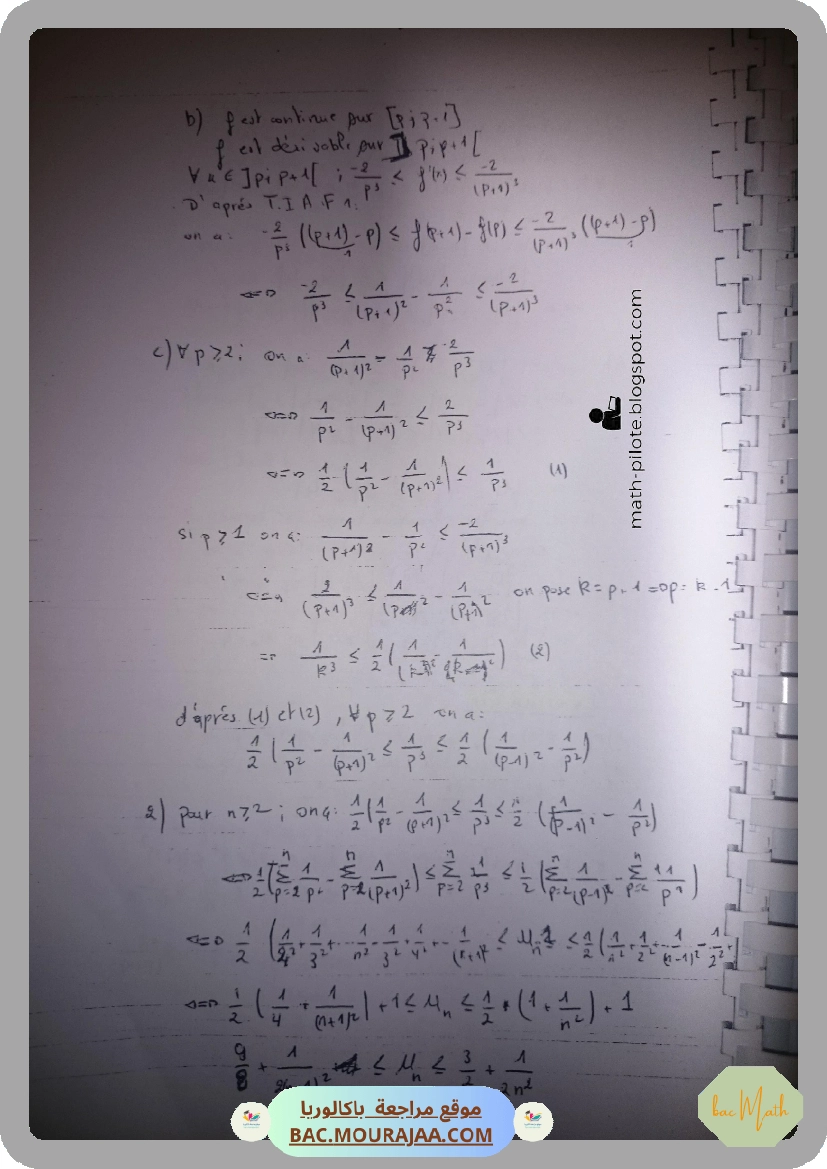 b) f est continue sur [p; p+1]
f est dérivable sur ]p; p+1[
∀ x ∈ ]p; p+1[ ; -2/p³ ≤ f'(x) ≤ -2/(p+1)³
D'aprés T.I.A.F 1.
on a: -2/p³ ((p+1) - p) ≤ f(p+1) - f(p) ≤ -2/(p+1)³ ((p+1) - p)
1 1
⟺ -2/p³ ≤ 1/(p+1)² - 1/p² ≤ -2/(p+1)³
c) ∀ p ≥ 2; on a: 1/(p+1)² - 1/p² ≥ -2/p³
⟺ 1/p² - 1/(p+1)² ≤ 2/p³
⟺ 1/2 (1/p² - 1/(p+1)²) ≤ 1/p³ (1)
si p ≥ 1 on a: 1/(p+1)² - 1/p² ≤ -2/(p+1)³
⟺ 2/(p+1)³ ≤ 1/p² - 1/(p+1)² on pose k = p+1 ⇒ p = k-1
⇒ 1/k³ ≤ 1/2 (1/(k-1)² - 1/k²) (2)
d'aprés (1) et (2), ∀ p ≥ 2 on a:
1/2 (1/p² - 1/(p+1)² ≤ 1/p³ ≤ 1/2 (1/(p-1)² - 1/p²)
2) pour n ≥ 2; on a: 1/2 (1/p² - 1/(p+1)² ≤ 1/p³ ≤ 1/2 (1/(p-1)² - 1/p²)
⟺ 1/2 (∑ⁿp=2 1/p² - ∑ⁿp=2 1/(p+1)²) ≤ ∑ⁿp=2 1/p³ ≤ 1/2 (∑ⁿp=2 1/(p-1)² - ∑ⁿp=2 1/p²)
⟺ 1/2 (1/2² + 1/3² + ... 1/n² - 1/3² + 1/4² + ... 1/(n+1)² ≤ Un-1 ≤ 1/2 (1/1² + 1/2² + ... 1/(n-1)² - 1/2² +
⟺ 1/2 (1/4 + 1/(n+1)²) + 1 ≤ Un ≤ 1/2 * (1 + 1/n²) + 1
9/8 + 1/ ≤ Un ≤ 3/2 + 1/2n²
math-pilote.blogspot.com
موقع مراجعة باكالوريا
BAC.MOURAJAA.COM
bac Math